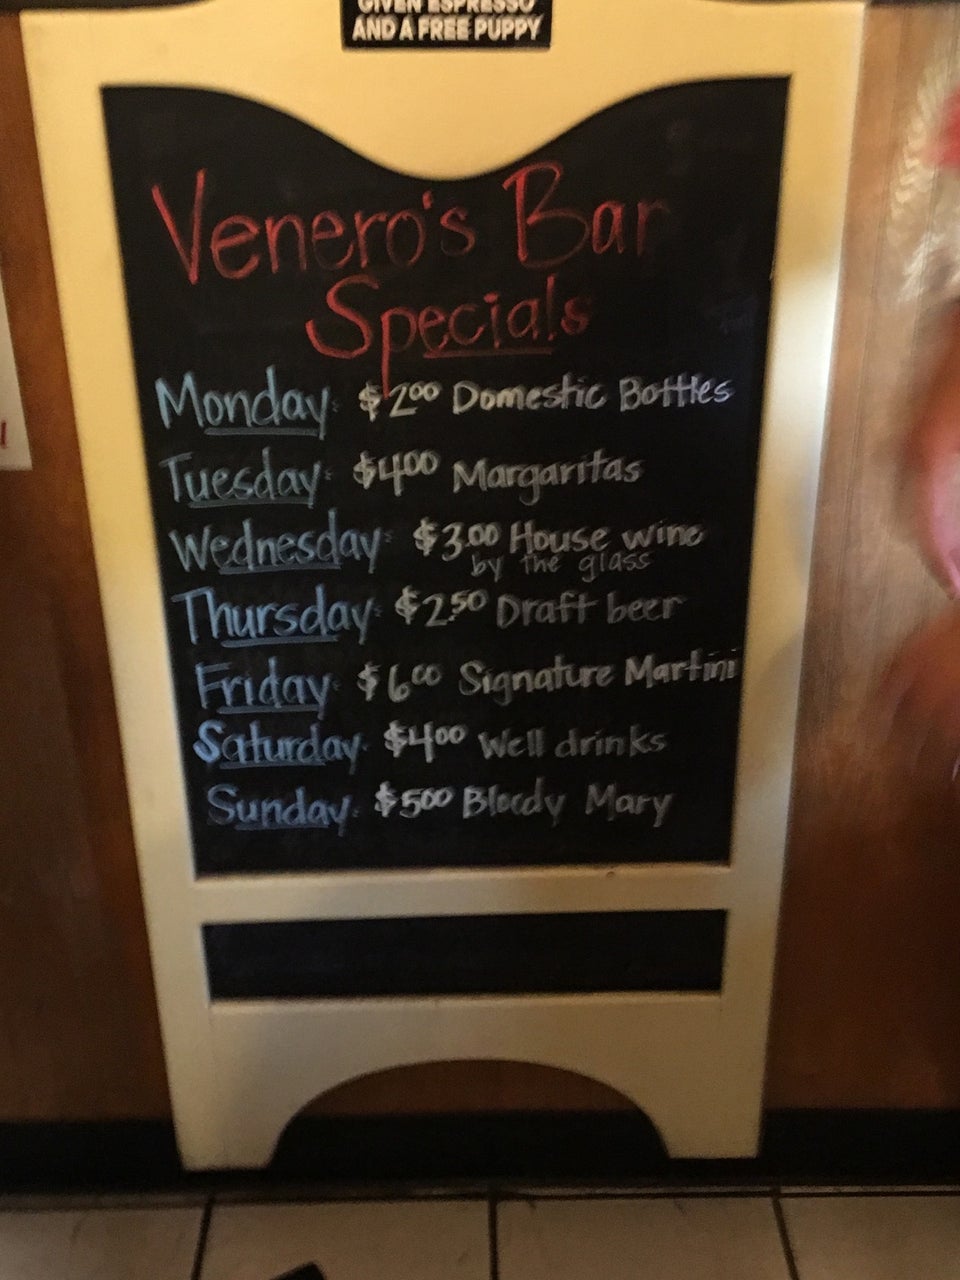 GIVEN ESPRESSO
AND A FREE PUPPY
Venero's Bar
Specials
Monday: $2.00 Domestic Bottles
Tuesday: $4.00 Margaritas
Wednesday: $3.00 House wine
by the glass
Thursday: $2.50 Draft beer
Friday: $6.00 Signature Martini
Saturday: $4.00 Well drinks
Sunday: $5.00 Bloody Mary